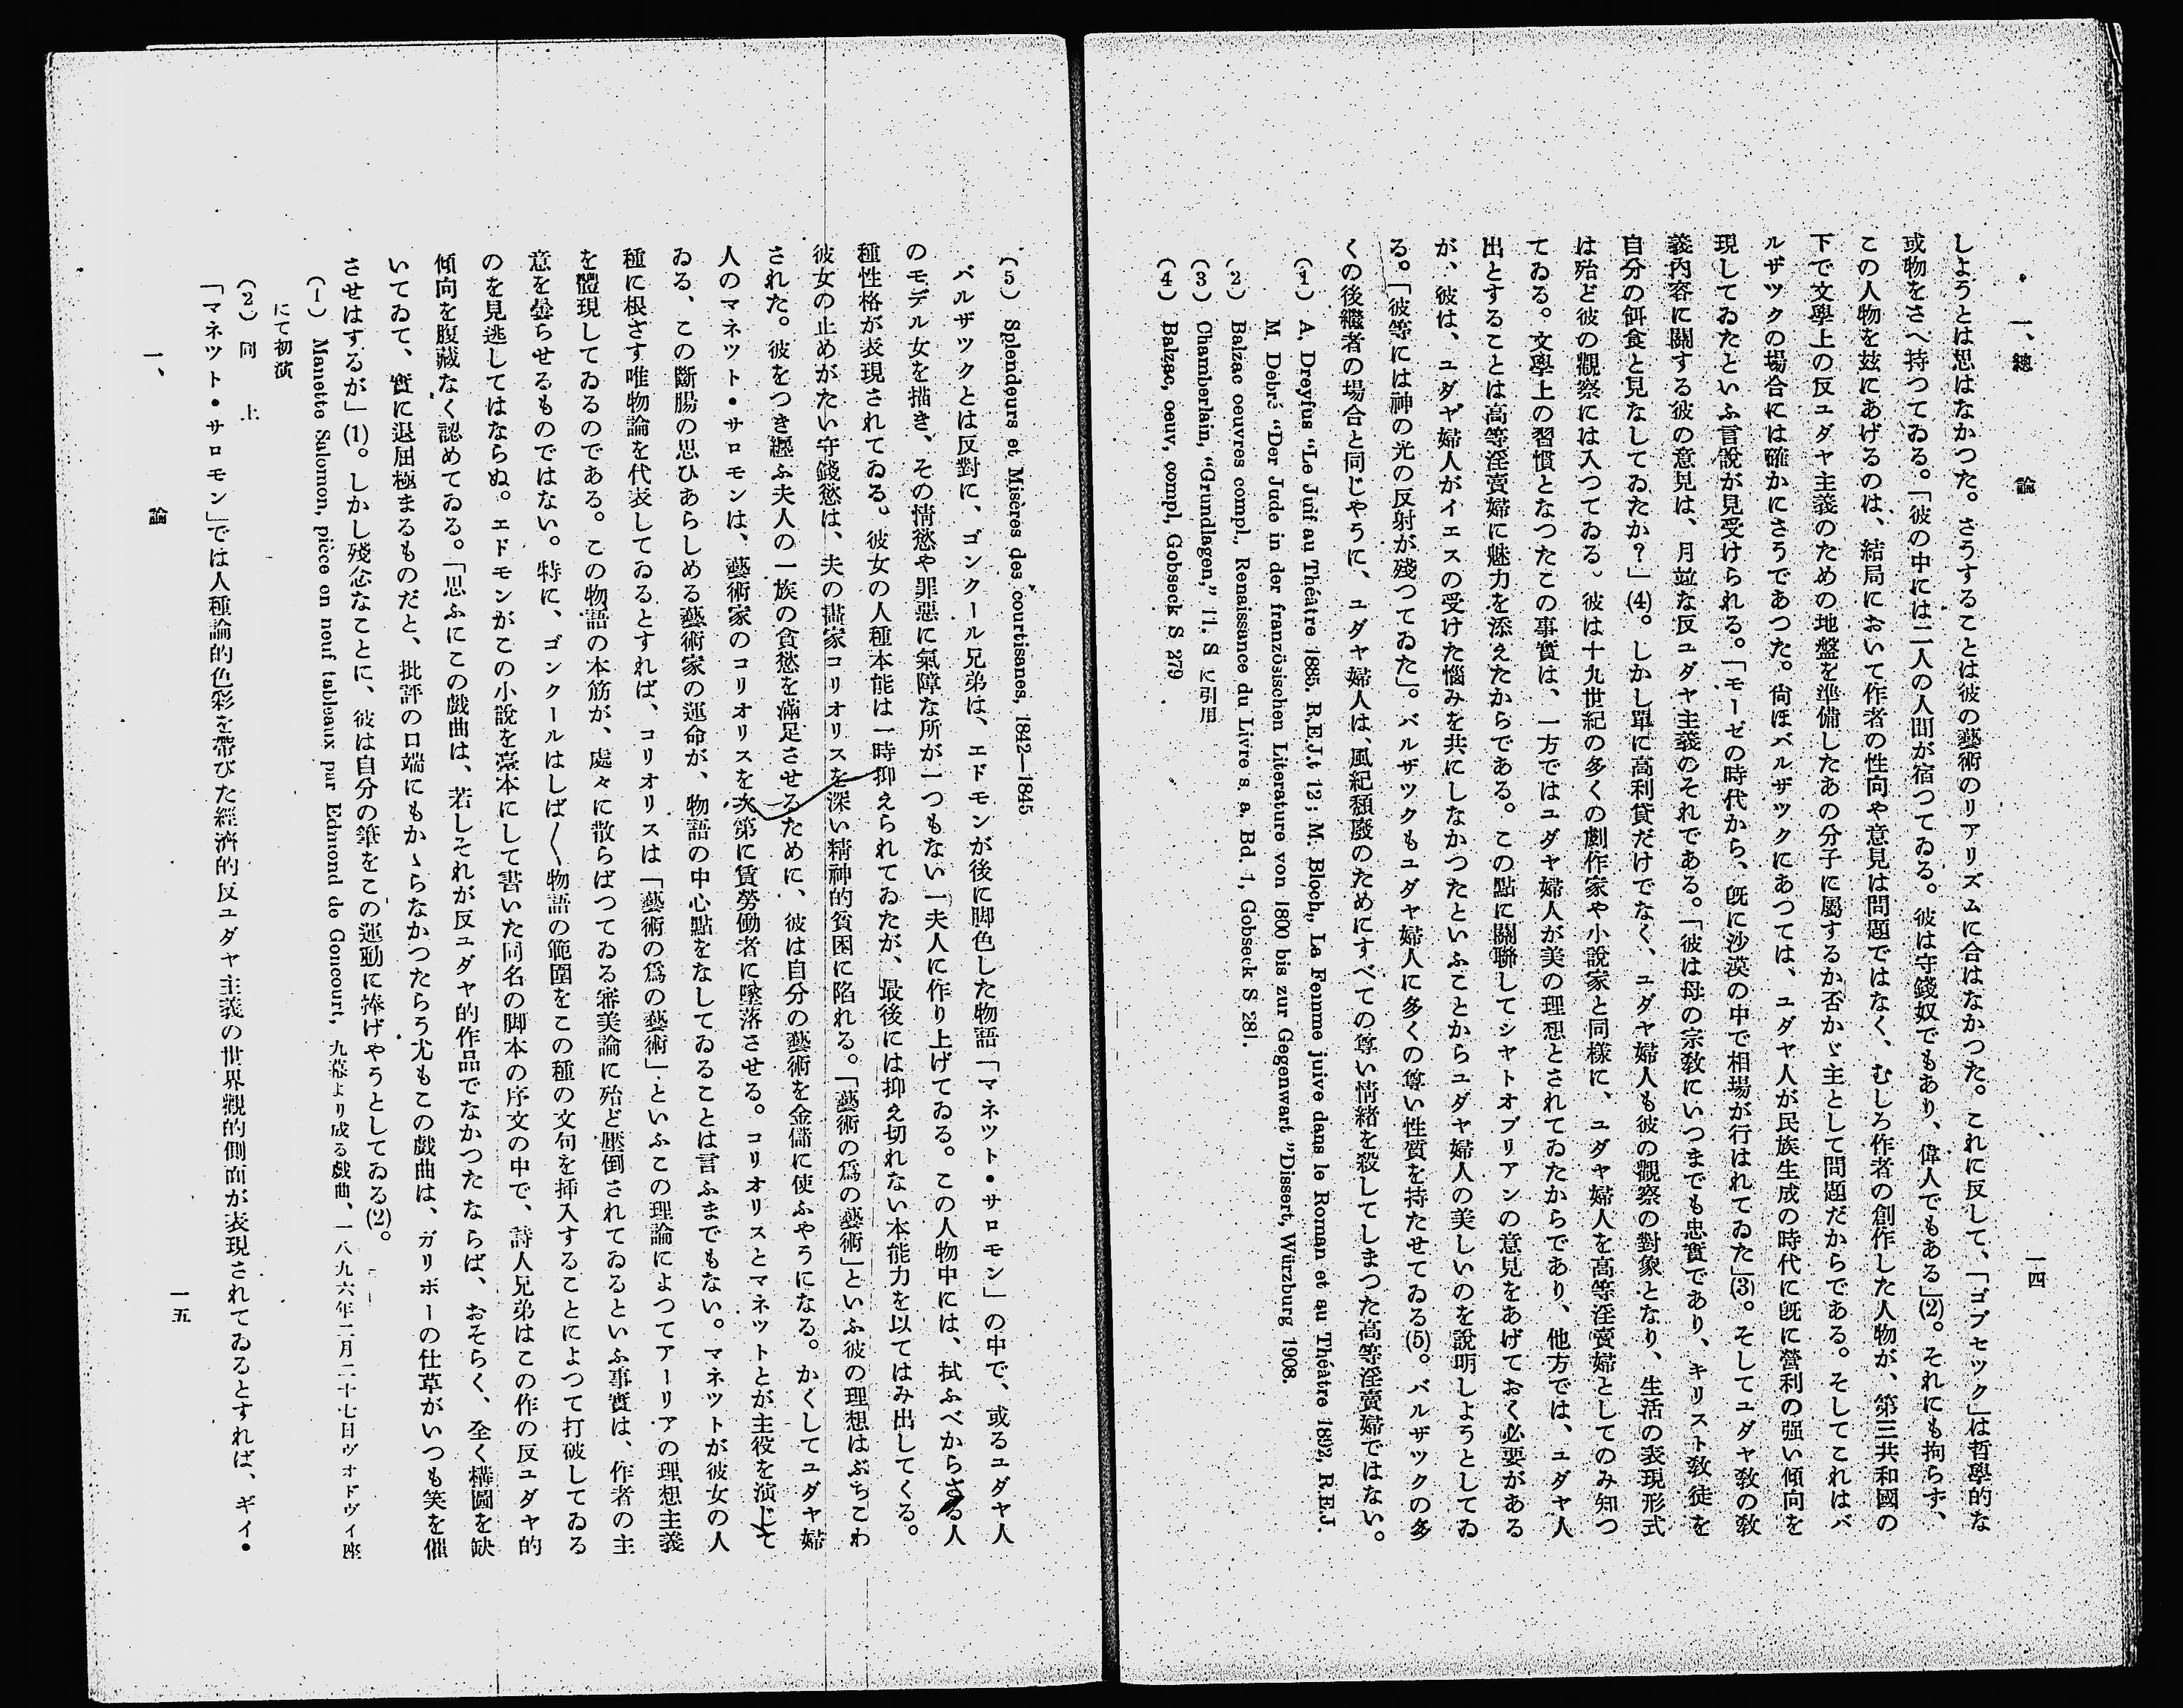 一、總論
一四
しようとは思はなかつた。さうすることは彼の藝術のリアリズムに合はなかつた。これに反して、「ゴブセツク」は哲學的な
或物をさへ持つてゐる。「彼の中には二人の人間が宿つてゐる。彼は守錢奴でもあり、偉人でもある」(2)。それにも拘らず、
この人物を玆にあげるのは、結局において作者の性向や意見は問題ではなく、むしろ作者の創作した人物が、第三共和國の
下で文學上の反ユダヤ主義のための地盤を準備したあの分子に屬するか否かゞ主として問題だからである。そしてこれはバ
ルザツクの場合には確かにさうであつた。尙ほバルザツクにあつては、ユダヤ人が民族生成の時代に旣に營利の强い傾向を
現してゐたといふ言說が見受けられる。「モーゼの時代から、旣に沙漠の中で相場が行はれてゐた」(3)。そしてユダヤ敎の敎
義內容に關する彼の意見は、月竝な反ユダヤ主義のそれである。「彼は母の宗敎にいつまでも忠實であり、キリスト敎徒を
自分の餌食と見なしてゐたか?」(4)。しかし單に高利貸だけでなく、ユダヤ婦人も彼の觀察の對象となり、生活の表現形式
は殆ど彼の觀察には入つてゐる。彼は十九世紀の多くの劇作家や小說家と同樣に、ユダヤ婦人を高等淫賣婦としてのみ知つ
てゐる。文學上の習慣となつたこの事實は、一方ではユダヤ婦人が美の理想とされてゐたからであり、他方では、ユダヤ人
出とすることは高等淫賣婦に魅力を添えたからである。この點に關聯してシヤトオブリアンの意見をあげておく必要がある
が、彼は、ユダヤ婦人がイエスの受けた惱みを共にしなかつたといふことからユダヤ婦人の美しいのを說明しようとしてゐ
る。「彼等には神の光の反射が殘つてゐた」。バルザツクもユダヤ婦人に多くの尊い性質を持たせてゐる(5)。バルザツクの多
くの後繼者の場合と同じやうに、ユダヤ婦人は、風紀頽廢のためにすべての尊い情緖を殺してしまつた高等淫賣婦ではない。
(1) A, Dreyfus “Le Juif au Théâtre 1885. R.E.J.t 12; M. Bloch„ La Femme juive dans le Roman et au Théâtre 1892, R.E.J.
M. Debré “Der Jude in der französischen Literature von 1800 bis zur Gegenwart ”Dissert, Würzburg 1908.
(2) Balzac oeuvres compl., Renaissance du Livre s. a. Bd. 1, Gobseck S 281.
(3) Chamberlain, “Grundlagen,” 11. S に引用
(4) Balzac, oeuv, compl, Gobseck S 279
(5) Splendeurs et Misères des courtisanes, 1842—1845
バルザツクとは反對に、ゴンクール兄弟は、エドモンが後に脚色した物語「マネツト・サロモン」の中で、或るユダヤ人
のモデル女を描き、その情慾や罪惡に氣障な所が一つもない一夫人に作り上げてゐる。この人物中には、拭ふべからざる人
種性格が表現されてゐる。彼女の人種本能は一時抑えられてゐたが、最後には抑え切れない本能力を以てはみ出してくる。
彼女の止めがたい守錢慾は、夫の畵家コリオリスを深い精神的貧困に陷れる。「藝術の爲の藝術」といふ彼の理想はぶちこわ
された。彼をつき纒ふ夫人の一族の貪慾を滿足させるために、彼は自分の藝術を金儲に使ふやうになる。かくしてユダヤ婦
人のマネツト・サロモンは、藝術家のコリオリスを次第に賃勞働者に墜落させる。コリオリスとマネツトとが主役を演じて
ゐる、この斷腸の思ひあらしめる藝術家の運命が、物語の中心點をなしてゐることは言ふまでもない。マネツトが彼女の人
種に根ざす唯物論を代表してゐるとすれば、コリオリスは「藝術の爲の藝術」といふこの理論によつてアーリアの理想主義
を體現してゐるのである。この物語の本筋が、處々に散らばつてゐる審美論に殆ど壓倒されてゐるといふ事實は、作者の主
意を曇らせるものではない。特に、ゴンクールはしば〱物語の範圍をこの種の文句を揷入することによつて打破してゐる
のを見逃してはならぬ。エドモンがこの小說を臺本にして書いた同名の脚本の序文の中で、詩人兄弟はこの作の反ユダヤ的
傾向を腹藏なく認めてゐる。「思ふにこの戲曲は、若しそれが反ユダヤ的作品でなかつたならば、おそらく、全く構圖を缺
いてゐて、實に退屈極まるものだと、批評の口端にもかゝらなかつたらう尤もこの戲曲は、ガリボーの仕草がいつも笑を催
させはするが」(1)。しかし殘念なことに、彼は自分の筆をこの運動に捧げやうとしてゐる(2)。
(1) Manette Salomon, pièce en neuf tableaux par Edmond de Goncourt, 九幕より成る戲曲、一八九六年二月二十七日ヴォドヴィ座
にて初演
(2) 同上
「マネツト・サロモン」では人種論的色彩を帶びた經濟的反ユダヤ主義の世界觀的側面が表現されてゐるとすれば、ギイ・
一、論
一五